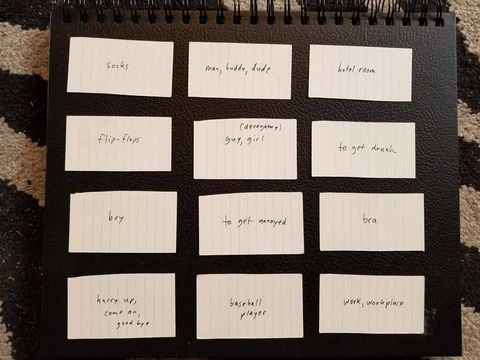 socks
man, buddy, dude
hotel room
flip-flops
(derogatory)
guy, girl
to get drunk
boy
to get annoyed
bra
hurry up,
come on,
good bye
baseball
player
work, workplace